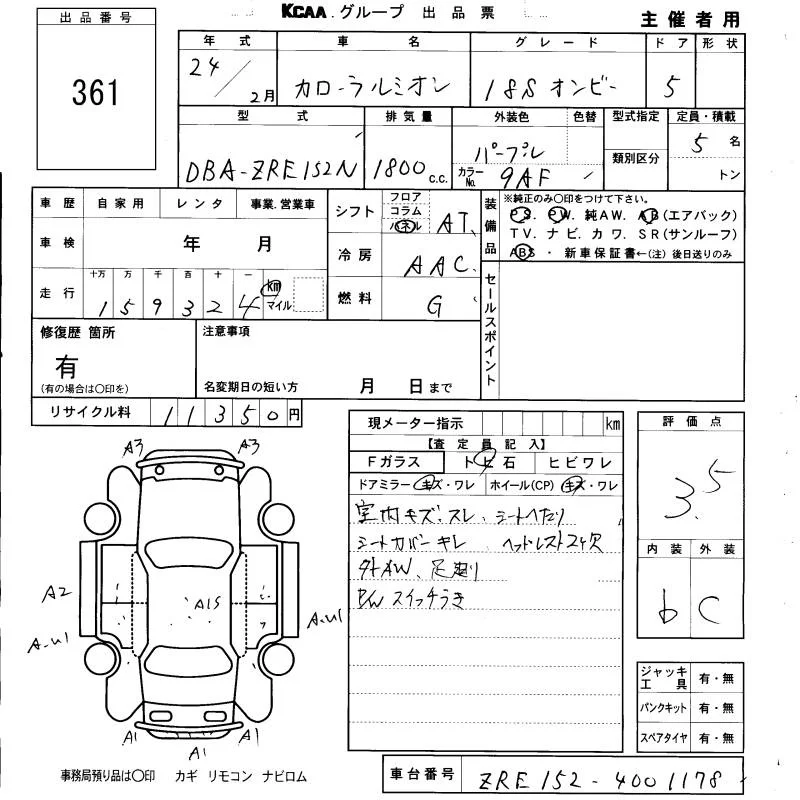 出品番号
361
KCAA.グループ 出品票
主催者用
年式 車名 グレード ドア 形状
24/2月 カローラルミオン 18S オンビー 5
型式 排気量 外装色 色替 型式指定 定員・積載
DBA-ZRE152N 1800c.c. パープル 類別区分 5名
カラーNo. 9AF トン
車歴 自家用 レンタ 事業.営業車
車検 年 月
走行 十万 万 千 百 十 一
1 5 9 3 2 4 km マイル
シフト フロア コラム パネル AT
冷房 AAC
燃料 G
装備品
※純正のみ〇印をつけて下さい。
PS. PW. 純AW. AB(エアバック)
TV. ナビ. カワ. SR(サンルーフ)
ABS ・ 新車保証書←(注) 後日送りのみ
セールスポイント
修復歴 箇所
有
(有の場合は〇印を)
注意事項
名変期日の短い方 月 日まで
リサイクル料 11350円
現メーター指示 km
【査定員記入】
Fガラス トビ石 ヒビワレ
ドアミラー キズ・ワレ ホイール(CP) キズ・ワレ
室内キズ.スレ、シートへたり
シートカバーキレ ヘッドレスト2ヶ欠
外AW、足廻り
スイッチうき
評価点
3.5
内装 外装
b C
ジャッキ工具 有・無
パンクキット 有・無
スペアタイヤ 有・無
A3 A3
A2 A1S
A.U1 A.U1
A1 A1 A1
事務局預り品は〇印 カギ リモコン ナビロム
車台番号 ZRE152-4001178